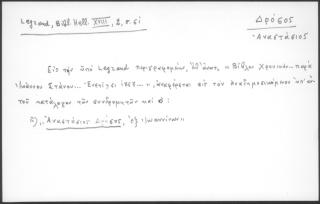 Legrand, Bibl. Hell. XVIII, 2, σ. 61
Δρόσος
Ἀναστάσιος
Εἰς τὴν ὑπὸ Legrand περιγραφομένην, ὡς ἄνω, « Βίβλον Χρονικὴν... παρὰ
Ἰωάννου Στάνου... Ἐνετίῃσι 1767... », ἀναφέρεται εἰς τὸν δημοσιευόμενον ὑπ' αὐ-
τοῦ κατάλογον τῶν συνδρομητῶν καὶ ὁ:
"Ἀναστάσιος Δρόσος, ἐξ Ἰωαννίνων"